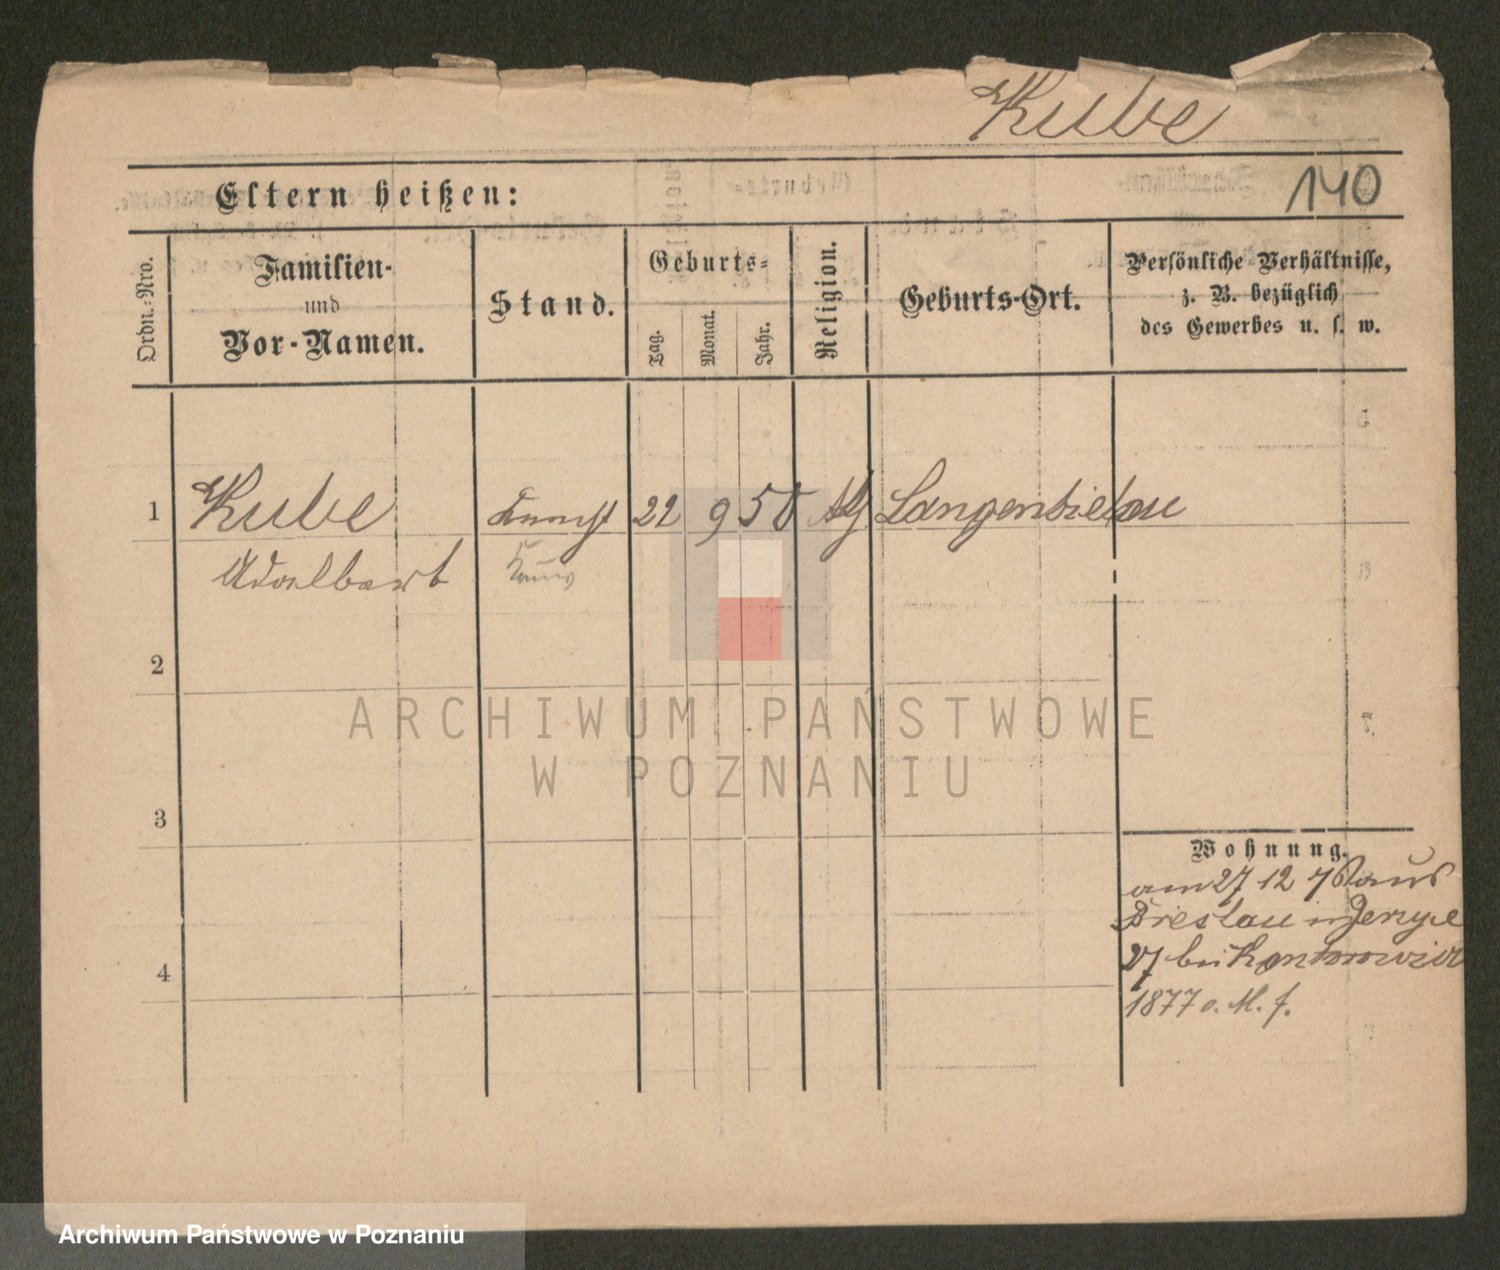 Kube
140
Eltern heißen:
Ordn.-Nro.
Familien-
und
Vor-Namen.
Stand.
Geburts-
Tag.
Monat.
Jahr.
Religion.
Geburts-Ort.
Persönliche Verhältnisse,
z. B. bezüglich
des Gewerbes u. s. w.
1 Kube 22 9 58 Langenbielau
Adalbert
2
ARCHIWUM PAŃSTWOWE
W POZNANIU
3
Wohnung.
am 27 12 76 aus
Breslau in Jerzyce
27 bei Kantorowicz
4
1877 o. M. f.
Archiwum Państwowe w Poznaniu